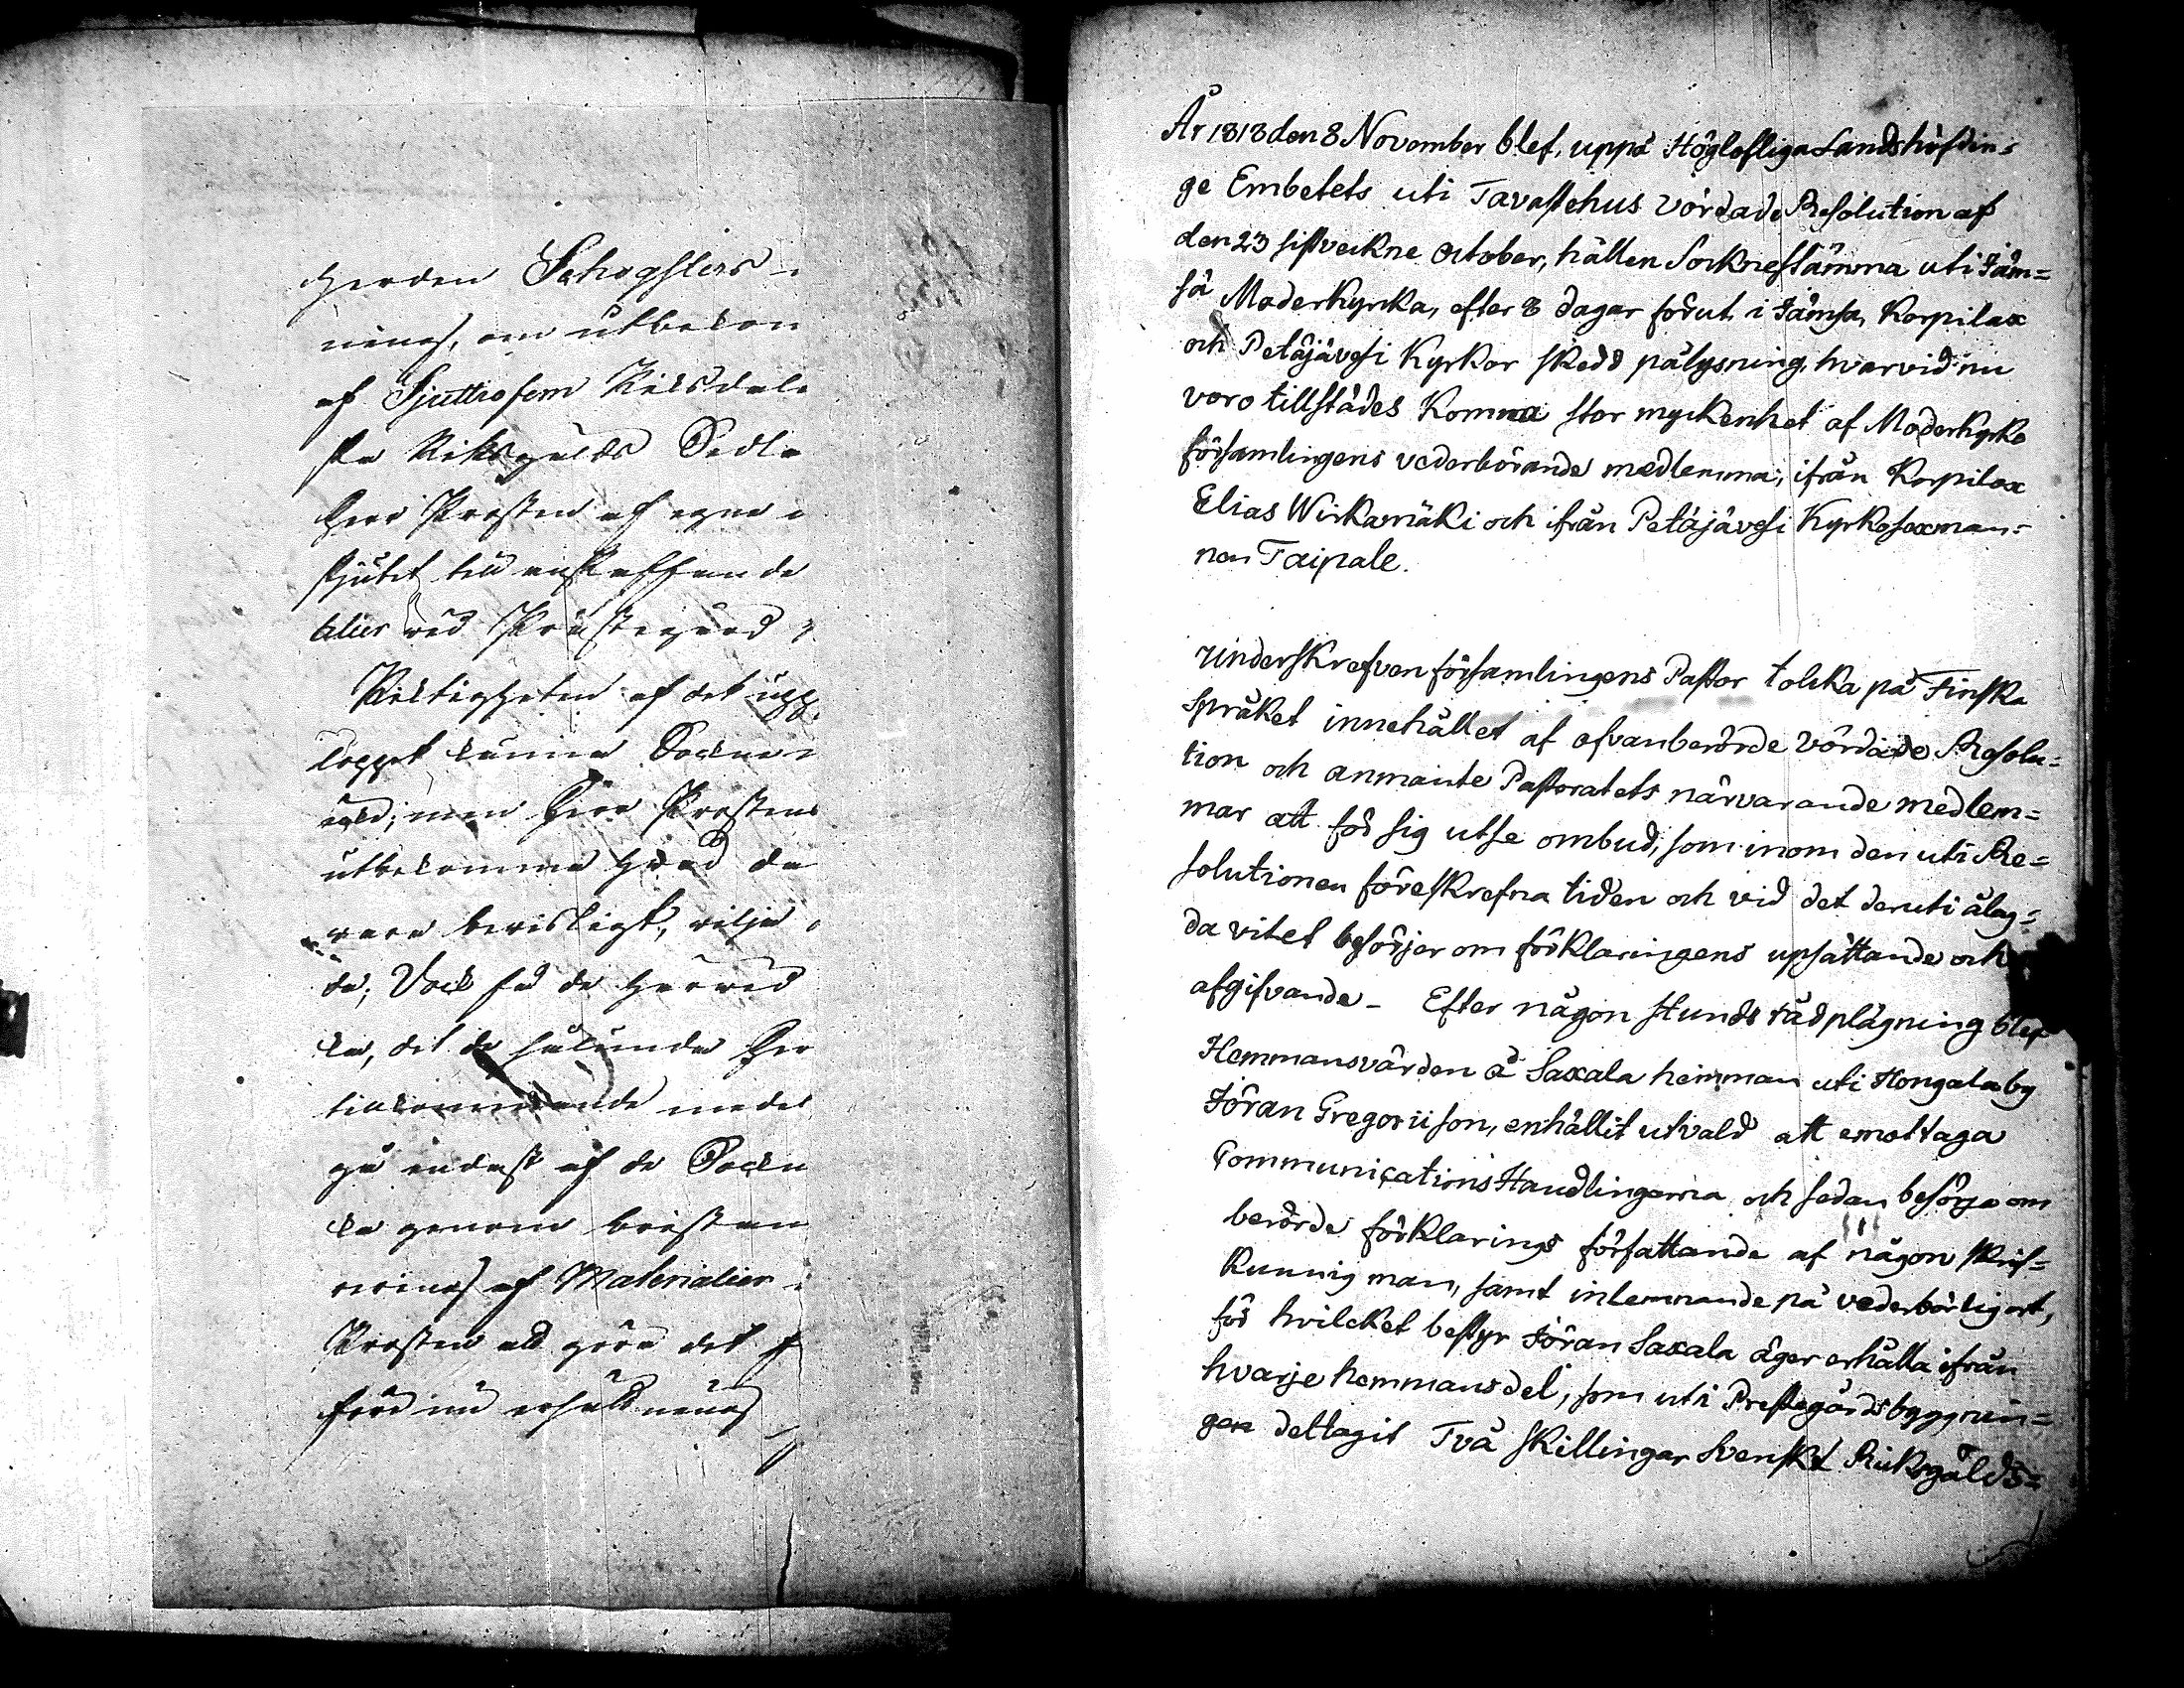 herden Schogsters
ning, om utbekom
af Sjuttiofem Riksdal
ska Riksgälds Sedla
Herr Prosten af egna
skjutit till anskaffande
alier vid Prästegård
Riktigheten af det upp
loppet kunna Sockne
men Herr Prostens
utbekomma hvad de
vara bevisligt, vilja
da; Dock få de härvid
ka, det de sålunda Her
tillkommande medel
gå endast af de Sockn
ka genom bristan
rering af Materialier
Prosten att göra det
förd nu erhållning
År 1818 den 8 November blef, uppå Höglofliga Landshöfdin=
ge Embetets uti Tavastehus vördade Resolution af
den 23 sistvekne October, hållen Socknestämma uti Jäm=
sä Moderkyrka, efter 8 dagar förut i Jämsä, Korpilax
och Petäjävesi Kyrkor skedd pålysning, hvarvid nu
voro tillstädes Komna stor myckenhet af Moderkyrko
församlingens vederbörande medlemmar, ifrån Korpilax
Elias Wirkamäki och ifrån Petäjävesi Kyrkosexman=
nen Taipale.
Underskrefven församlingens Pastor tolcka på Finska
Språket innehållet af ofvanberörde vördade Resolu=
tion och anmante Pastoratets närvarande medlem=
mar att för sig utse ombud, som inom den uti Re=
solutionen föreskrefna tiden och vid det deruti ålag=
da vitet besörjer om förklaringens upsättande och
afgifvande – Efter någon stunds rådplägning blef
Hemmansvärden å Saxala hemman uti Hongola by
Jöran Gregorii son, enhällit utvald att emottaga
Communications Handlingarna och sedan besörja om
berörde förklarings författande af någon skrif=
kunnig man, samt inlemnande på vederbörlig ort,
för hvilcket bestyr Jöran Saxala äger erhålla ifrån
hvarje hemmansdel, som uti Prestegårdsbyggnin=
gen deltagit Två skillingar Svenskt Riksgälds=